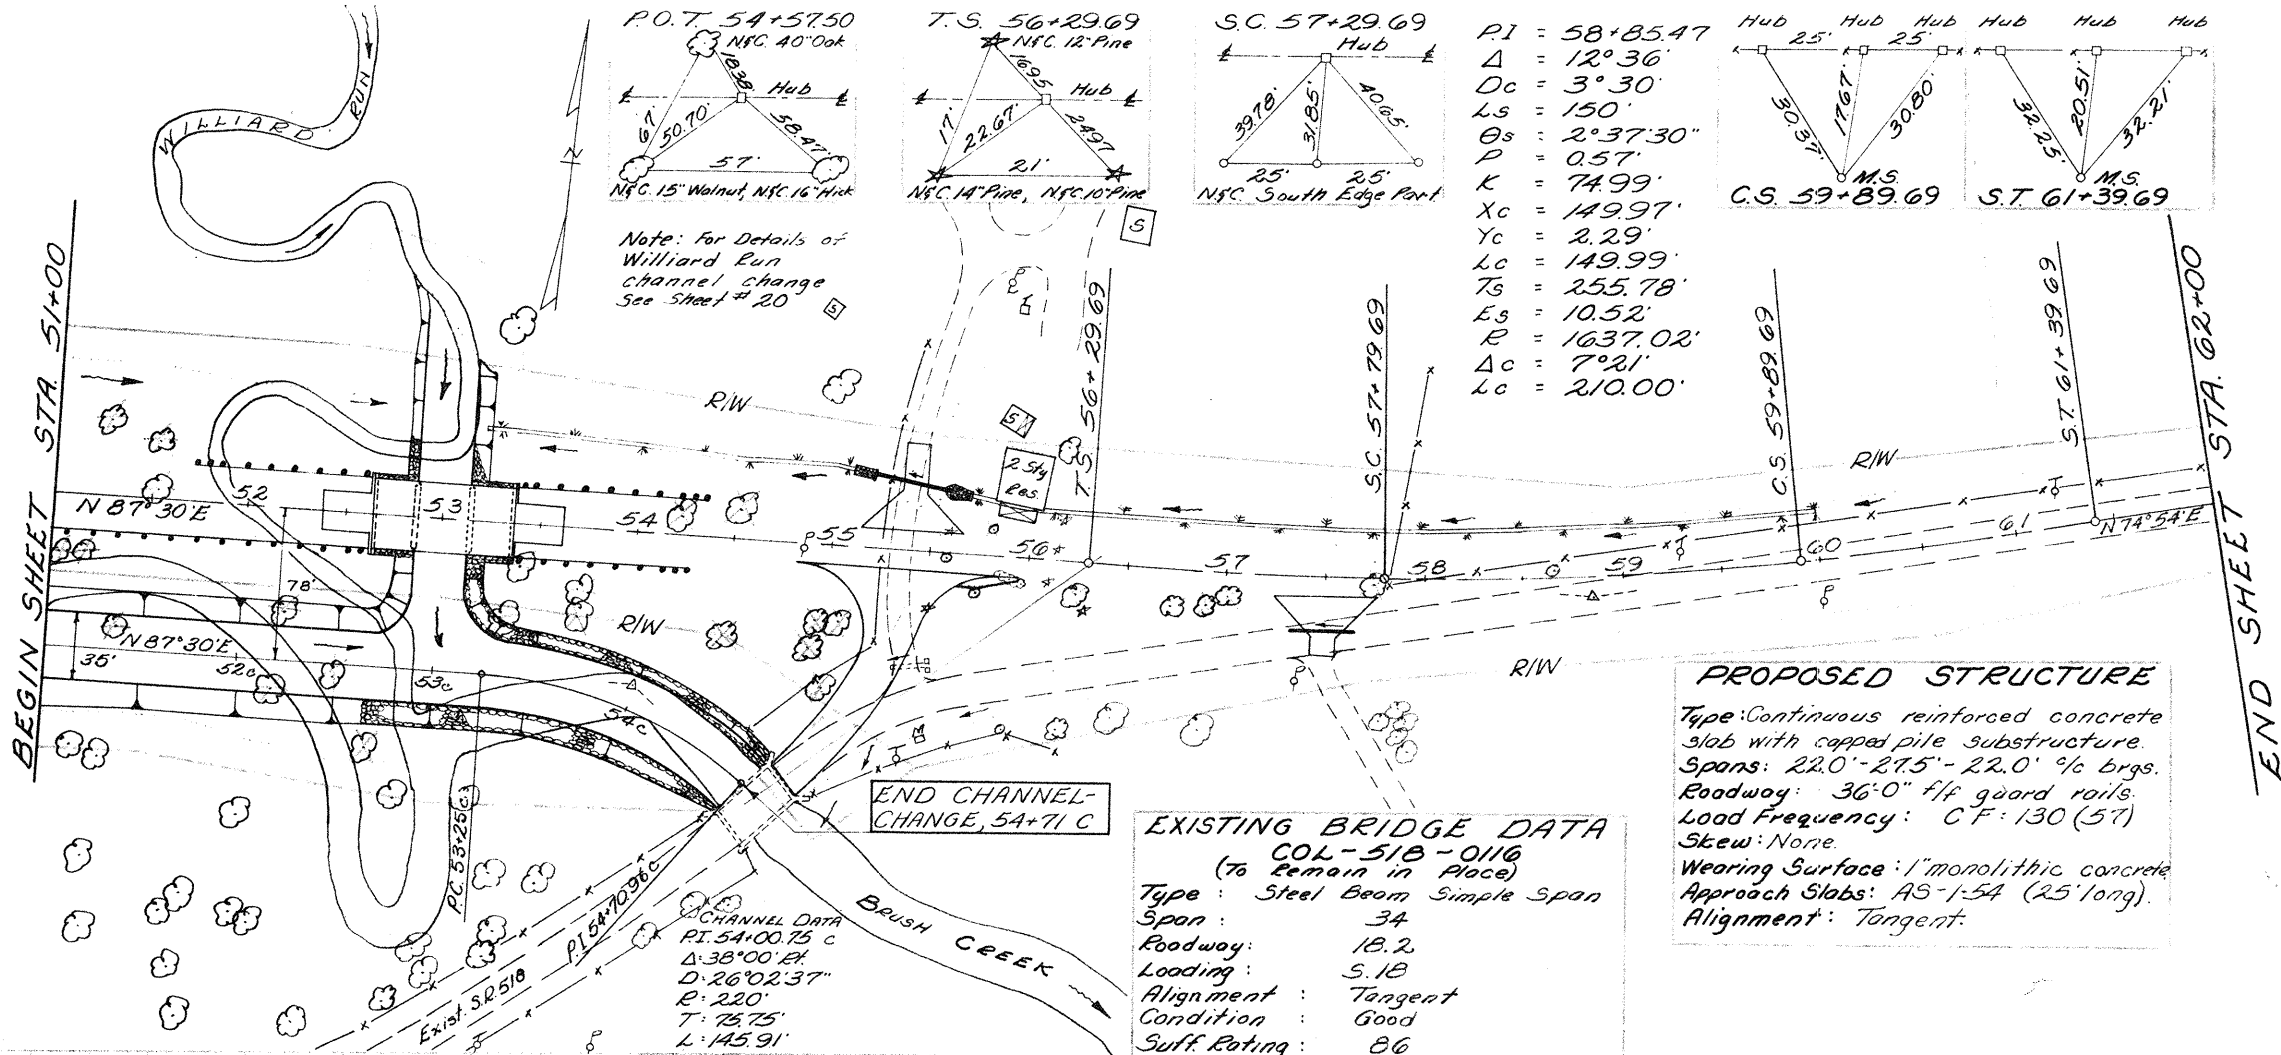 P.O.T. 54+57.50
N&C. 40" Oak
18.38'
Hub
67'
50.70'
58.47'
57'
N&C. 15" Walnut, N&C. 16" Hick
T.S. 56+29.69
N&C. 12" Pine
16.95
Hub
17'
22.67'
24.97
21'
N&C. 14" Pine, N&C. 10" Pine
S.C. 57+29.69
Hub
39.78'
31.85'
40.65'
25' 25'
N&C. South Edge Pav't
P.I = 58+85.47
Δ = 12° 36'
Dc = 3° 30'
Ls = 150'
Θs = 2°37'30"
P = 0.57'
K = 74.99'
Xc = 149.97'
Yc = 2.29'
Lc = 149.99'
Ts = 255.78'
Es = 10.52'
R = 1637.02'
Δc = 7°21'
Lc = 210.00'
Hub Hub Hub
25' 25'
30.37'
17.67'
30.80'
M.S.
C.S. 59+89.69
Hub Hub Hub
32.25'
20.51'
32.21'
M.S.
S.T. 61+39.69
WILLIARD RUN
N
Note: For Details of
Williard Run
channel change
See Sheet # 20
S
S
S
BEGIN SHEET STA. 51+00
END SHEET STA. 62+00
R/W
R/W
R/W
R/W
2 Sty
Res.
T.S. 56+29.69
S.C. 57+79.69
C.S. 59+89.69
S.T. 61+39.69
N 87°30'E
52
53
54
55
56
57
58
59
60
61
N 74°54'E
78'
35'
N 87°30'E
52c
53c
54c
P.C. 53+25 c
P.I. 54+70.96 c
Exist. S.R. 518
END CHANNEL-
CHANGE, 54+71 C
BRUSH CREEK
CHANNEL DATA
P.I. 54+00.75 c
Δ: 38°00' Rt.
D: 26°02'37"
R: 220'
T: 75.75'
L: 145.91'
EXISTING BRIDGE DATA
COL-518-0116
(To Remain in Place)
Type : Steel Beam Simple Span
Span : 34
Roadway: 18.2
Loading : S.18
Alignment : Tangent
Condition : Good
Suff. Rating : 86
PROPOSED STRUCTURE
Type: Continuous reinforced concrete
slab with capped pile substructure.
Spans: 22.0'-27.5'-22.0' c/c brgs.
Roadway: 36'-0" f/f guard rails.
Load Frequency: C F: 130 (57)
Skew: None.
Wearing Surface: 1" monolithic concrete
Approach Slabs: AS-1-54 (25' long).
Alignment: Tangent.